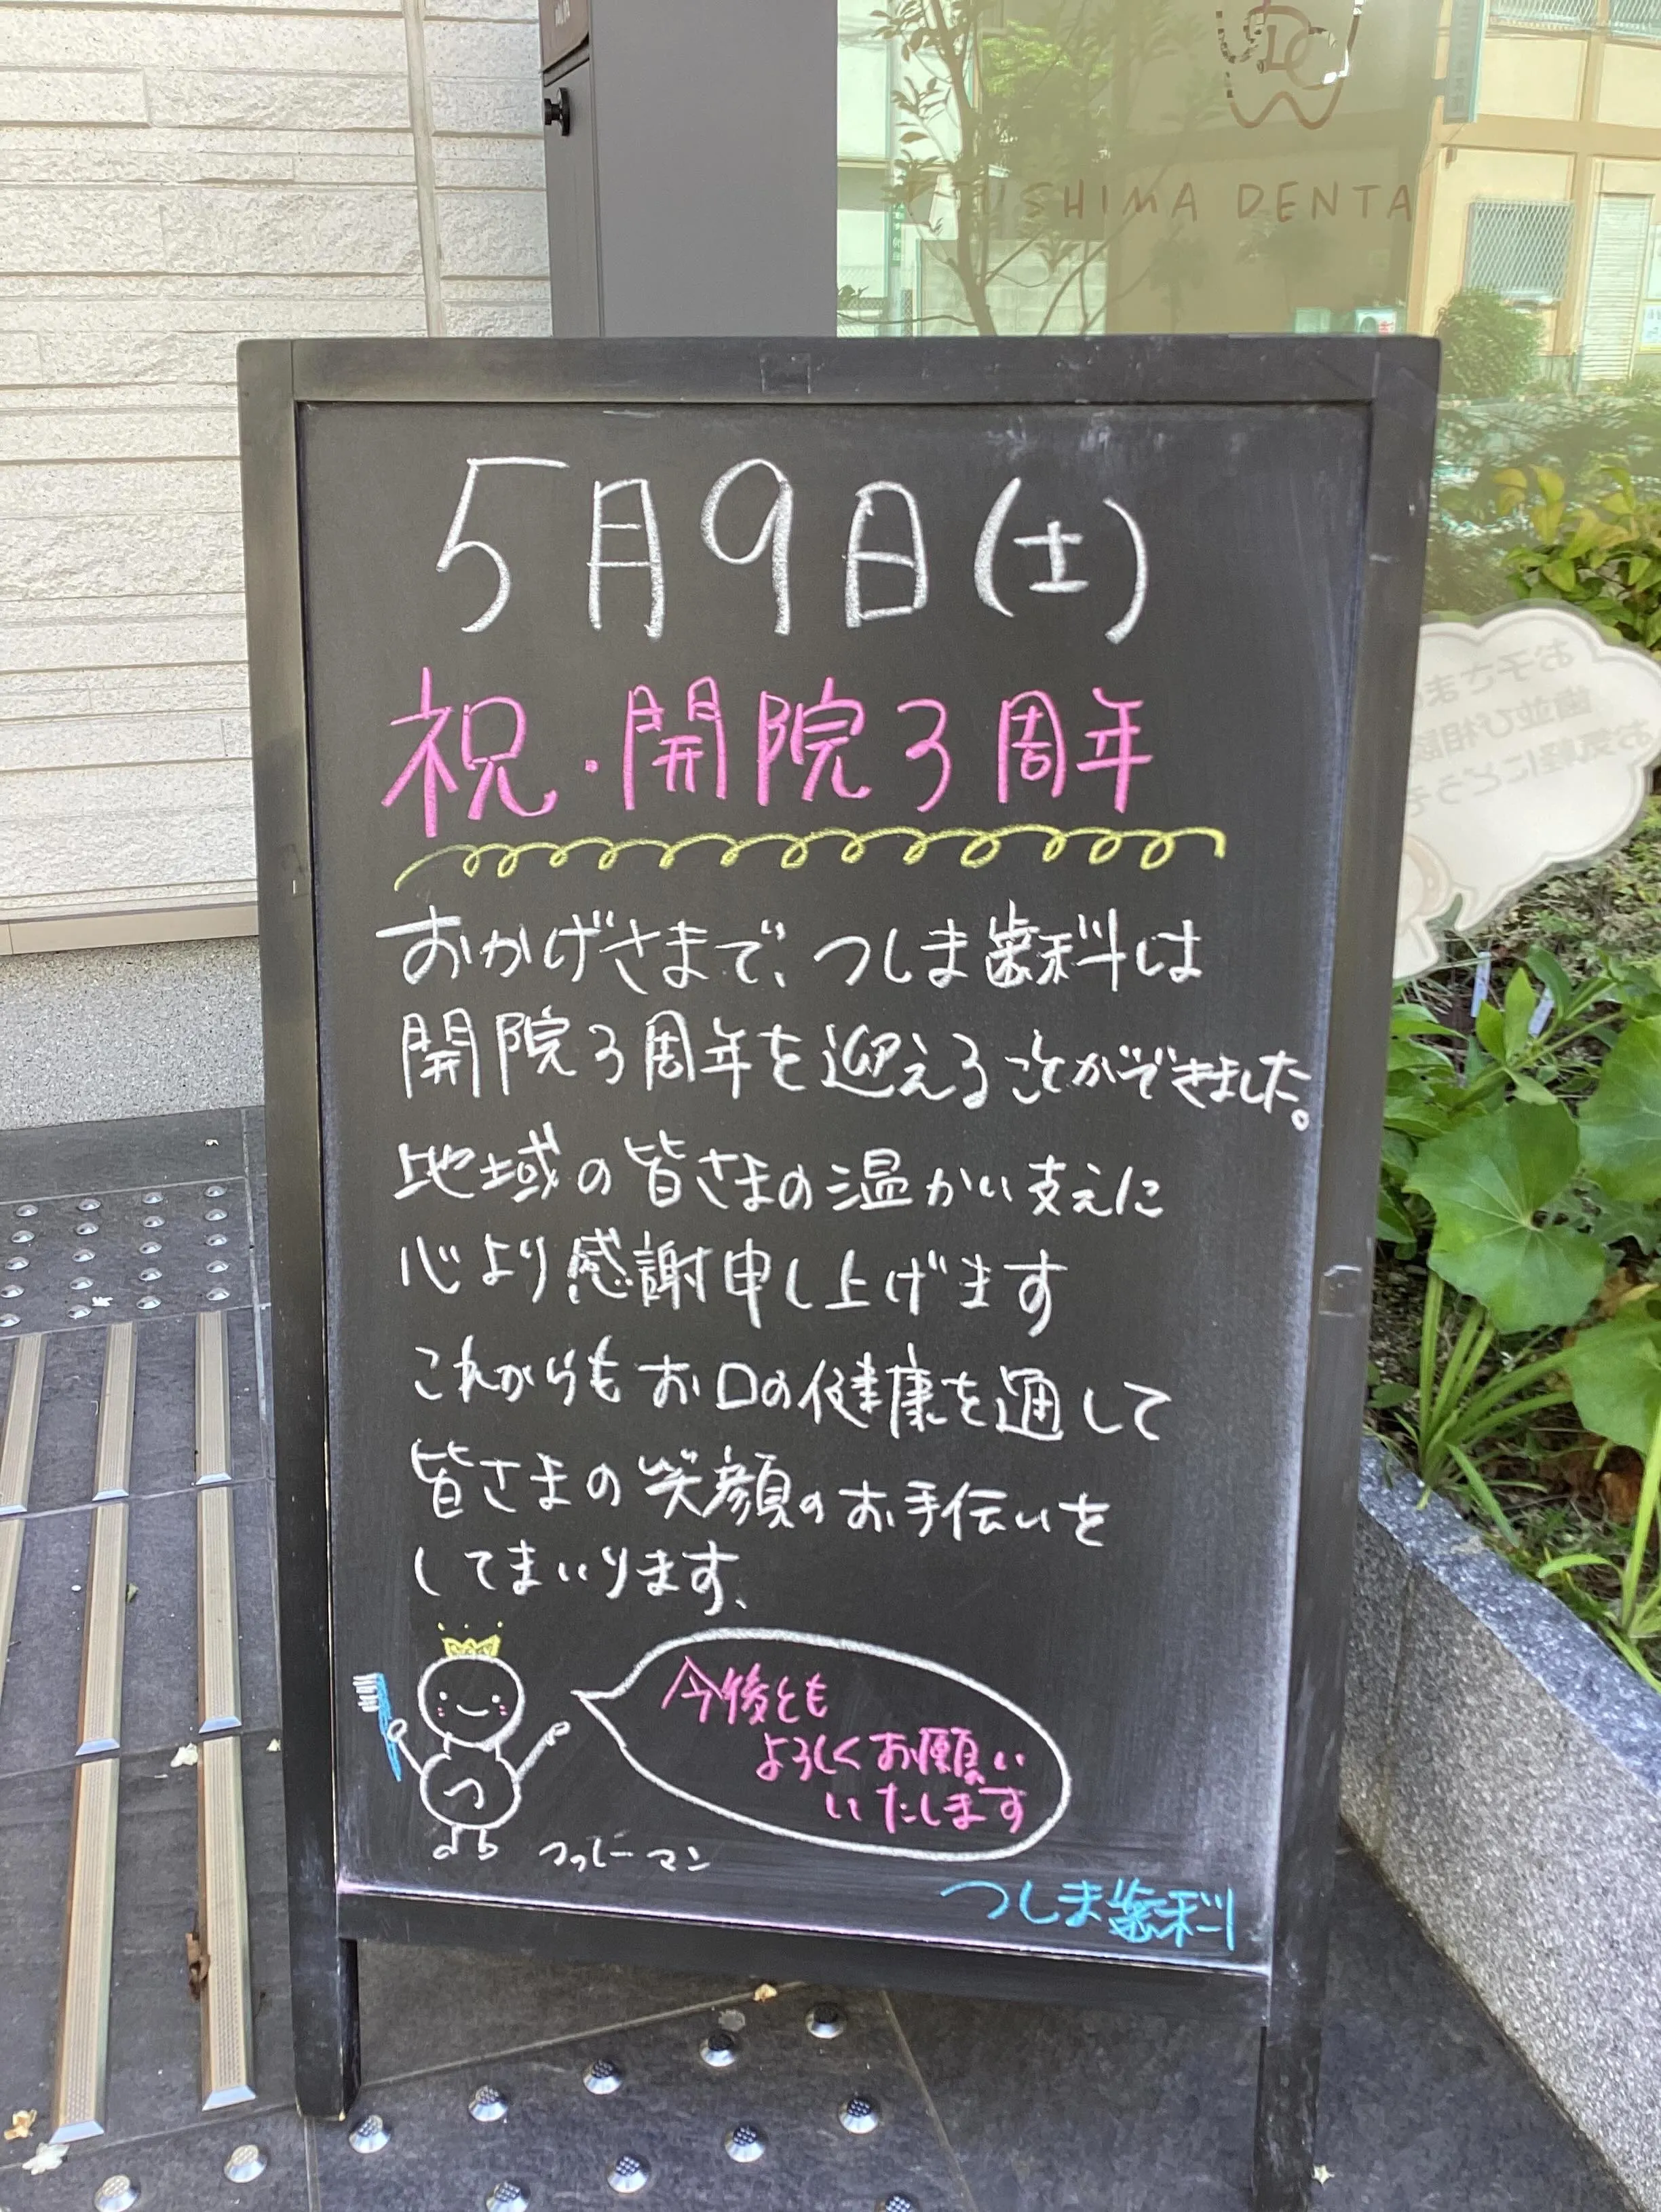 TSUSHIMA DENTA
5月9日(土)
祝・開院3周年
おかげさまで、つしま歯科は
開院3周年を迎えることができました。
地域の皆さまの温かい支えに
心より感謝申し上げます
これからもお口の健康を通して
皆さまの笑顔のお手伝いを
してまいります、
今後とも
よろしくお願い
いたします
つ
つっしーマン
つしま歯科
お子さまの
歯並び相談
お気軽にどうぞ